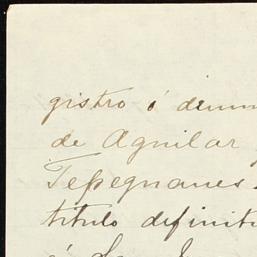 gistro ó denun
de Aguilar
Tepeguanes.
titulo definit
ó